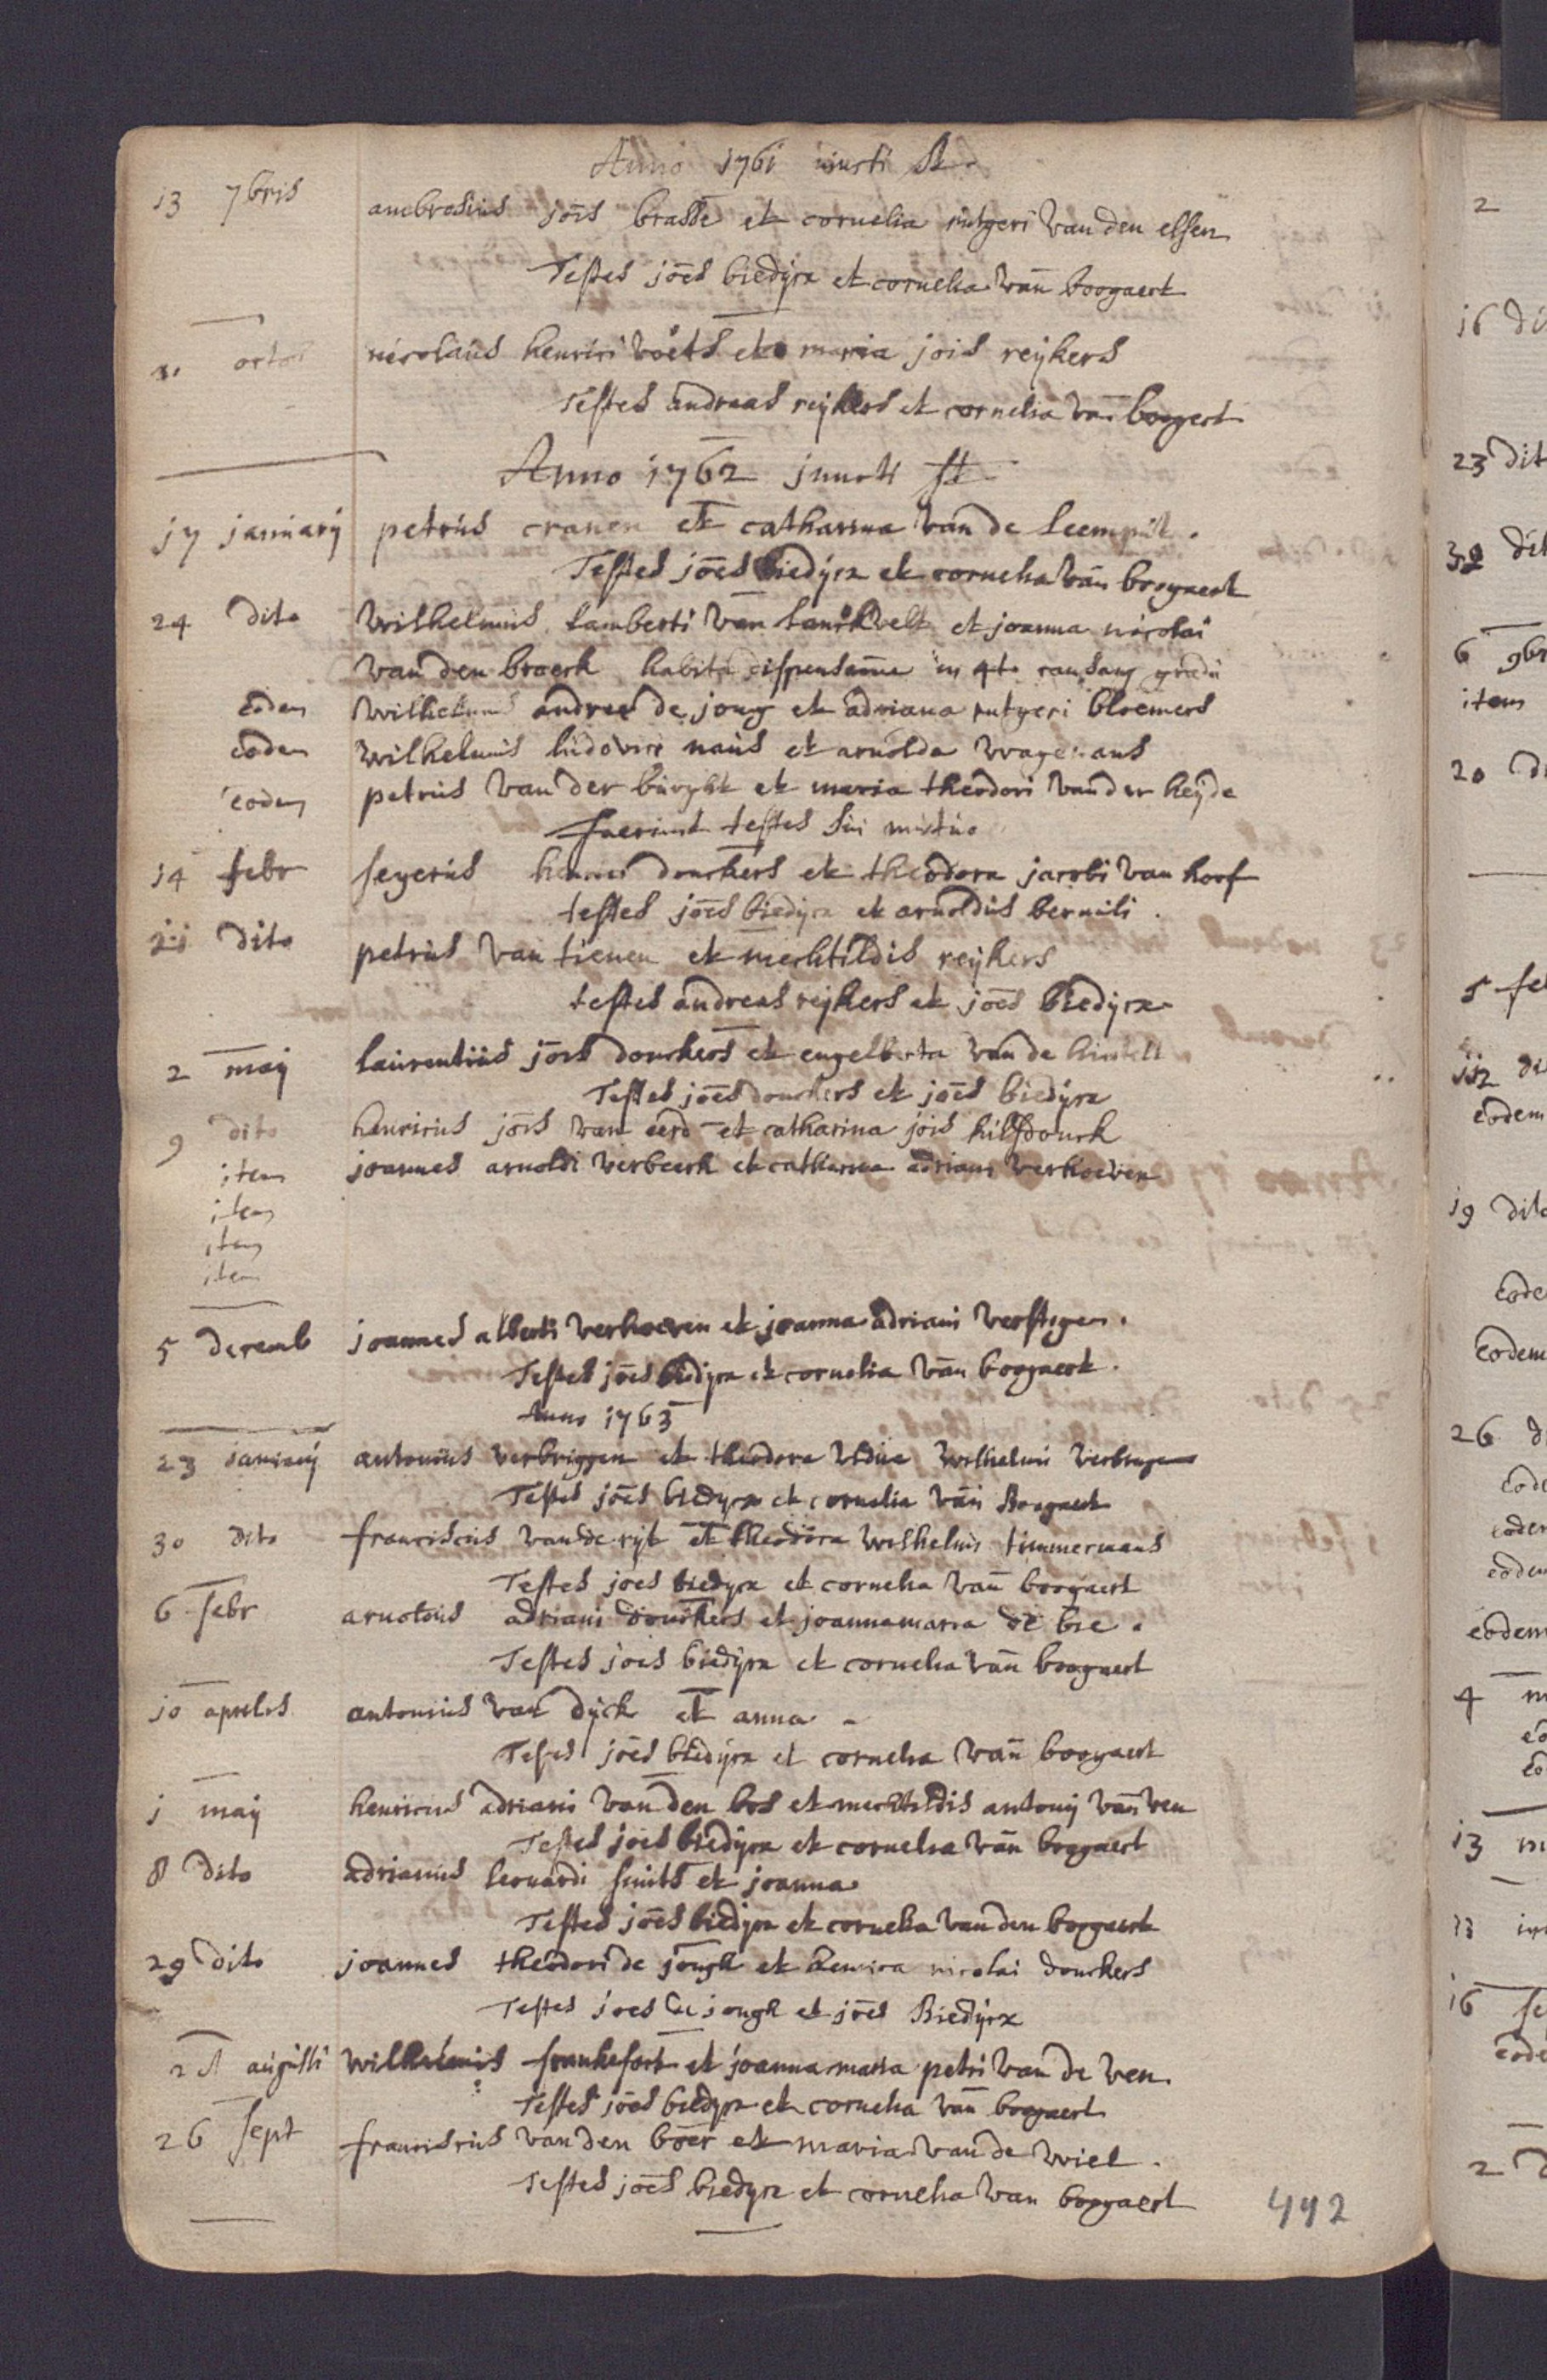 Anno 1761 iuncti st
13 7bris ambrosius jōis brasse et cornelia rutgeri van den elsen
Testes jōēs biedijcx et cornelia van boogaert
octob nicolaus henrici voets et maria jois reijkers
Testes andreas reijkers et cornelia van boogert
Anno 1762 juncti st
17 januarij petrus cranen et catharina van de leemput.
Testes jōēs biedijcx et cornelia van boogaert
24 dito Wilhelmus lamberti van lanckvelt et joanna nicolai
van den broeck habita dispensatione in 4to consang gradu
eodem Wilhelmus andreae de jong et adriana rutgeri bloemers
eodem wilhelmus ludovici naus et arnolda wagemans
eodem petrus van der burght et maria theodori van der heijde
fuerunt testes sui mutuo
14 febr segerus donckers et theodora jacobi van hoof
testes jōēs biedijcx et arnoldus
21 dito petrus van tienen et mechtildis reijkers
testes andreas reijkers et jōēs biedijcx
2 maij laurentius jōis donckers et engelberta van de
Testes jōēs donckers et jōēs biedijcx
9 dito henricus jōis van eerd et catharina jōis hilsdonck
item joannes arnoldi verbeeck et catharina adriani verhoeven
item
item
item
5 decemb joannes alberti verhoeven et joanna adriani verstegen.
Testes jōēs biedijcx et cornelia van boogaert.
Anno 1763
23 januarij antonius verbriggen et theodora vidua wilhelmi
Testes jōēs biedijcx et cornelia van Boogaert
30 dito franciscus van de rijt et theodora wilhelmi timmermans
Testes joes biedijcx et cornelia van boogaert
6 febr arnoldus adriani donckers et joannamaria de bie.
Testes joes biedijcx et cornelia van boogaert
10 aprilis antonius van dijck et anna
Testes jōēs biedijcx et cornelia van boogaert
1 maij henricus adriani van den bos et mechtildis antonij van ven
Testes joes biedijcx et cornelia van boogaert
8 dito adrianus leonardi smits et joanna
Testes jōēs biedijcx et cornelia van den boogaert
29 dito joannes theodori de jongh et henrica nicolai donckers
Testes joes de jongh et jōēs Biedijcx
21 augusti Wilhelmus frankefort et joanna maria petri van de ven.
Testes jōēs biedijcx et cornelia van boogaert
26 sept franciscus van den boer et maria van de wiel.
Testes jōēs biedijcx et cornelia van boogaert
442
2
16
23 dit
6 9br
item
20
5 fe
eodem
19 dito
eode
eodem
26 d
eode
eodem
eodem
eodem
4 m
13 m
16 se
eode
2 d